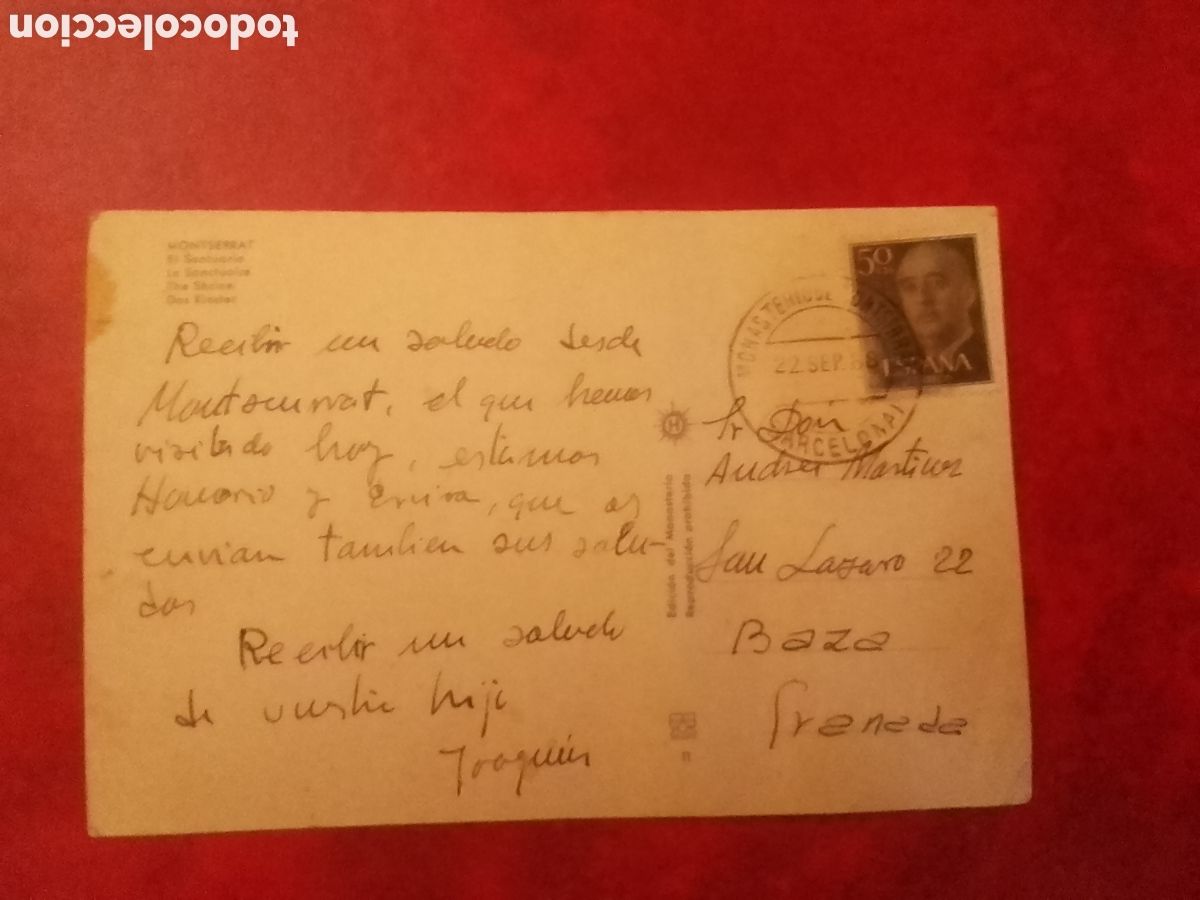 todocoleccion
MONTSERRAT
El Santuario
Le Sanctuaire
The Shrine
Das Kloster
Recibir un saludo desde
Montserrat, el que hemos
visitado hoy, estamos
Honorio y que os
envian tambien sus salu-
dos
Recibir un saludo
de vuestro hijo
Joaquin
Edición del Monasterio
Reproducción prohibida
H
11
50
ESPAÑA
MONASTERIO DE
22 SEP.
BARCELONA
Sr Don
Andres Martinez
San Lazaro 22
Baza
Granada